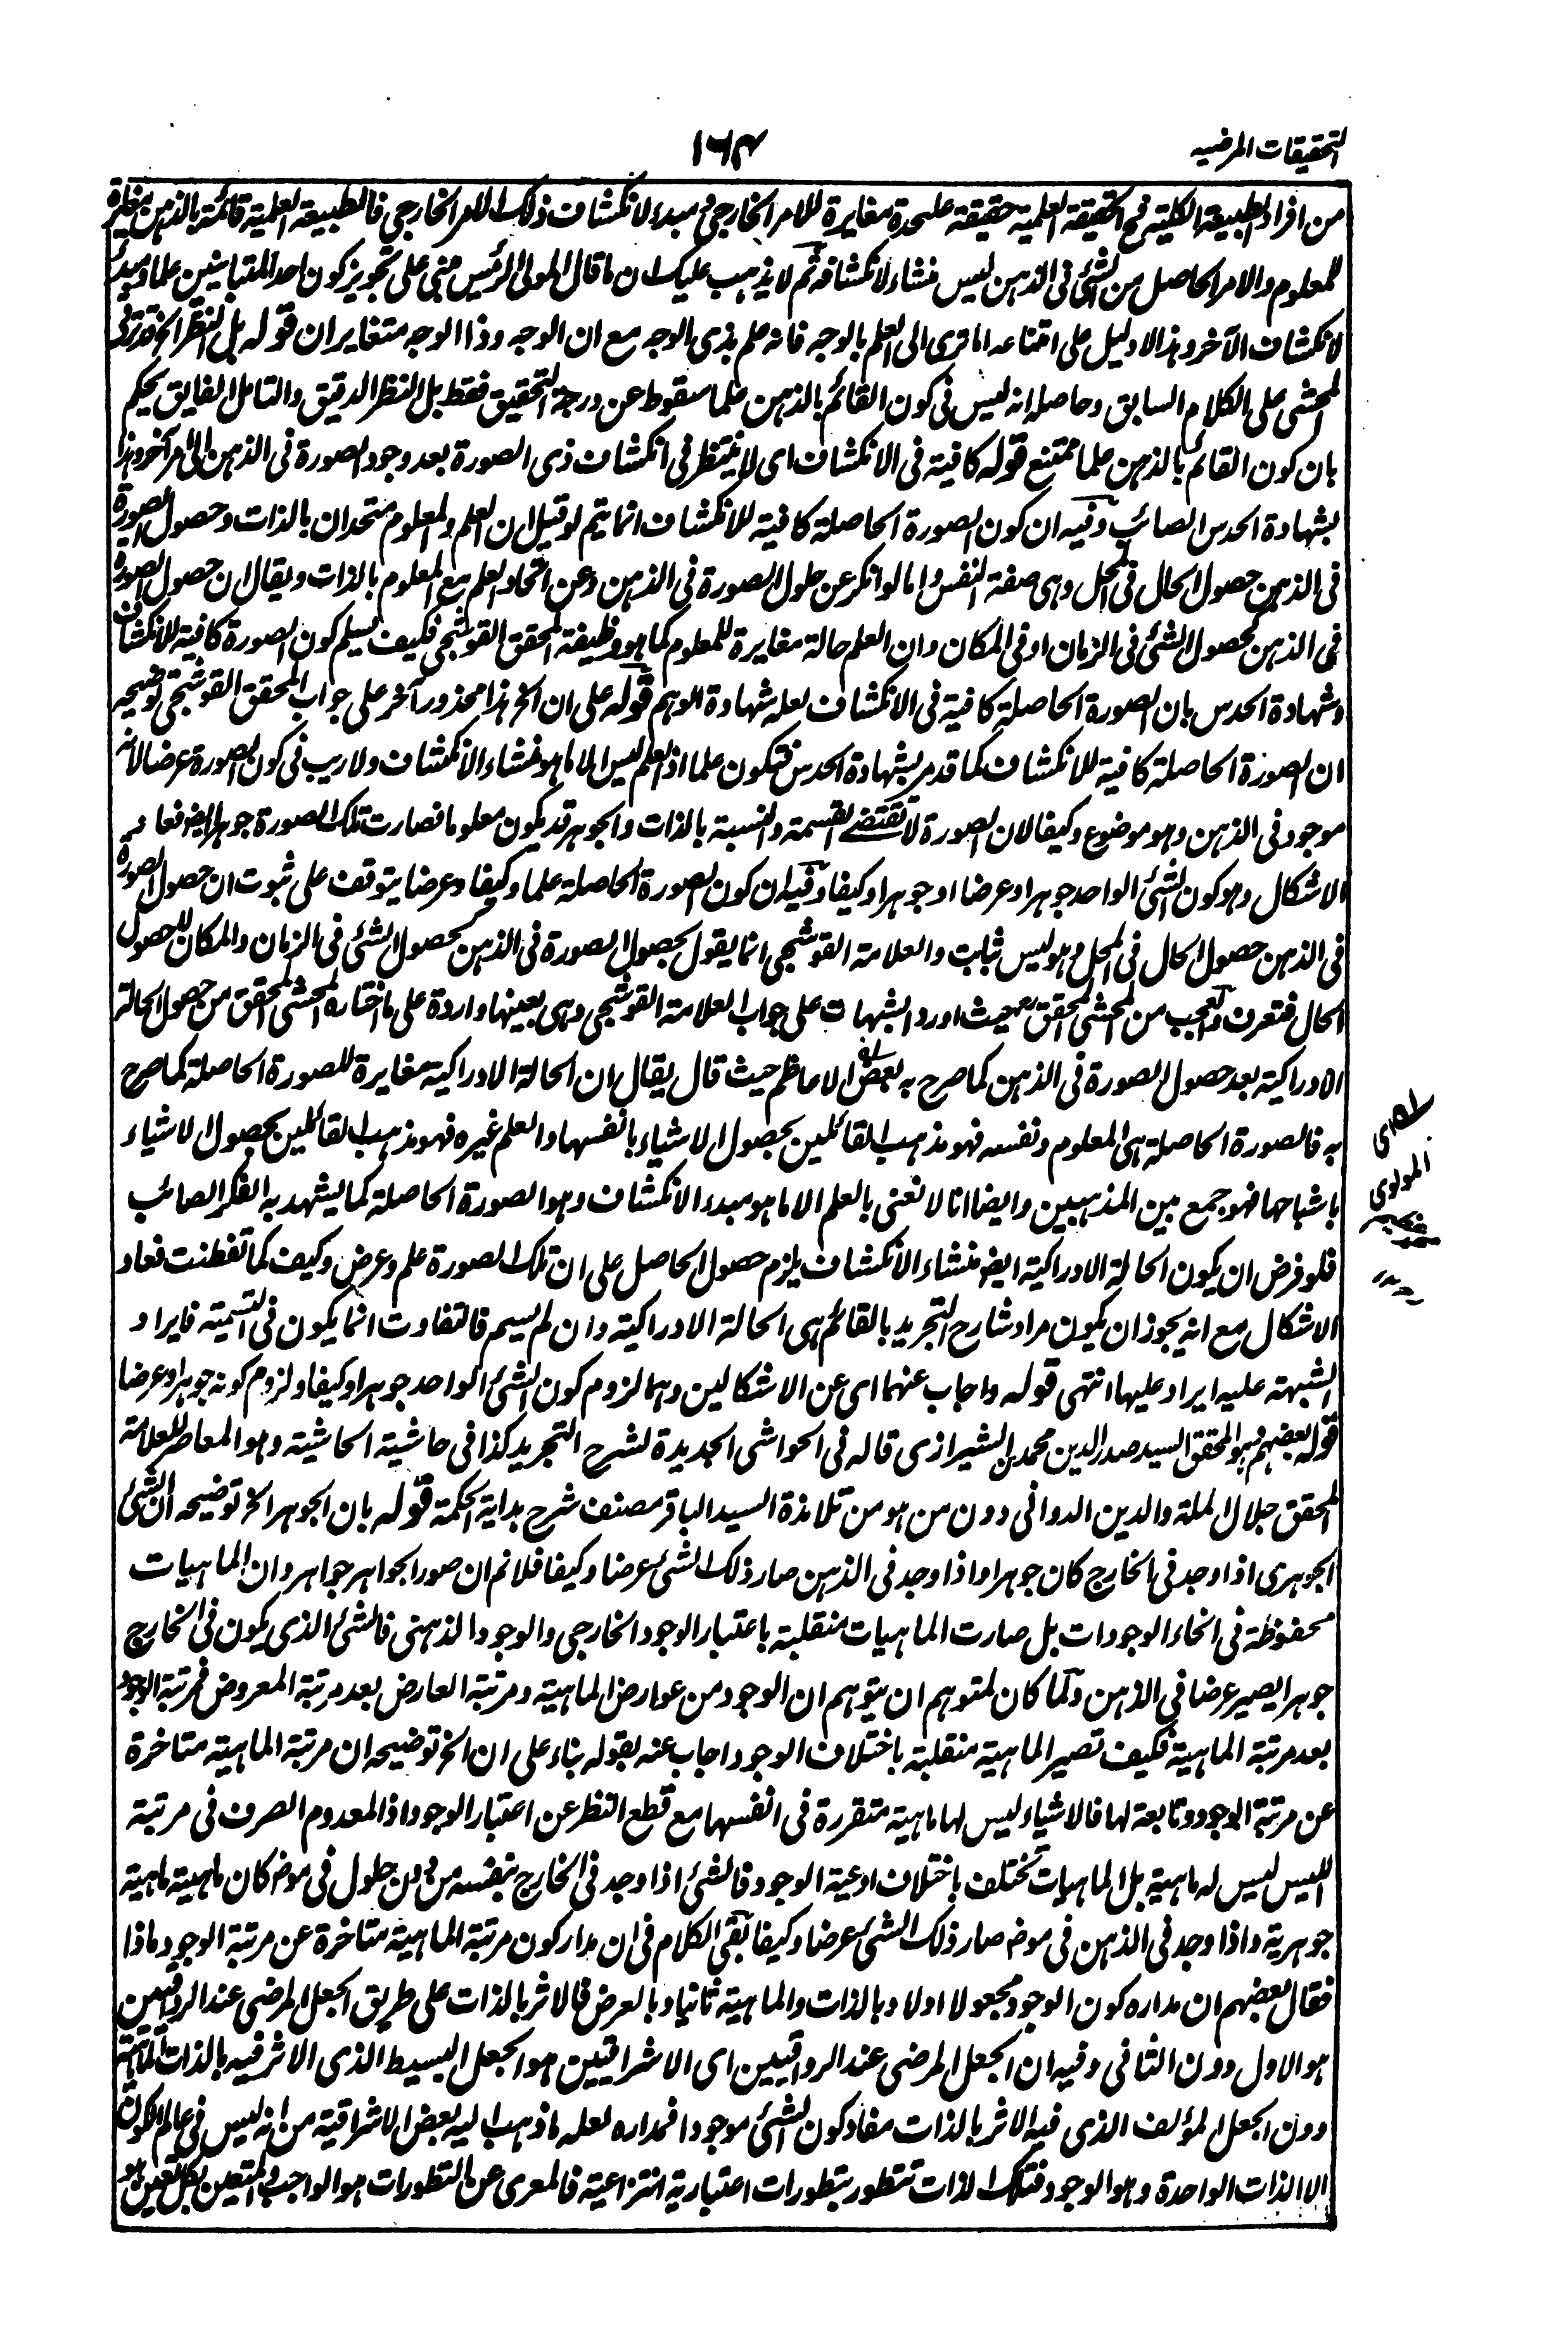 التحقيقات المرضيه
١٦٤
من افراد الطبيعة الكلية فى الحقيقة العلمية حقيقة عليحدة مغايرة للامر الخارجى مبدء لانكشاف ذلك الامر الخارجى فالطبيعة العلمية قائمة بالذهن مغايرة
للمعلوم والامر الحاصل من الشئ فى الذهن ليس منشاء لانكشافه ثم لا يذهب عليك ان ما قال المولى الرئيس مبنى على تجويز كون احد المتباينين علما ومبدء
لانكشاف الآخر وهذا لا دليل على امتناعه اما ترى الى العلم بالوجه فانه علم بذى الوجه مع ان الوجه وذا الوجه متغايران قوله بل النظر الخ ترقى
المحشى على الكلام السابق وحاصله انه ليس فى كون القائم بالذهن علما سقوط عن درجة التحقيق فقط بل النظر الدقيق والتامل الفايق يحكم
بان كون القائم بالذهن علما ممتنع قوله كافية فى الانكشاف اى لا ينتظر فى انكشاف ذى الصورة بعد وجود الصورة فى الذهن الى امر آخر وهذا
بشهادة الحدس الصائب وفيه ان كون الصورة الحاصلة كافية للانكشاف انما يتم لو قيل ان العلم والمعلوم متحدان بالذات وحصول الصورة
فى الذهن حصول الحال فى المحل وهى صفة النفس واما لو انكر عن حلول الصورة فى الذهن وعن اتحاد العلم مع المعلوم بالذات ويقال ان حصول الصورة
فى الذهن كحصول الشئ فى الزمان او فى المكان وان العلم حالة مغايرة للمعلوم كما هو وظيفة المحقق القوشجى فكيف يسلم كون الصورة كافية للانكشاف
وشهادة الحدس بان الصورة الحاصلة كافية فى الانكشاف لعله شهادة الوهم قوله على ان الخ هذا محذور آخر على جواب المحقق القوشجى توضيحه
ان الصورة الحاصلة كافية للانكشاف كما قد مر بشهادة الحدس فتكون علما اذ العلم ليس الا ما هو منشاء الانكشاف ولا ريب فى كون الصورة عرضا لانه
موجود فى الذهن وهو موضوع وكيفا لان الصورة لا تقتضى القسمة والنسبة بالذات والجوهر قد يكون معلوما فصارت تلك الصورة جوهرا ايضا فعاد
الاشكال وهو كون الشئ الواحد جوهرا وعرضا او جوهرا وكيفا وفيه ان كون الصورة الحاصلة علما وكيفا وعرضا يتوقف على ثبوت ان حصول الصورة
فى الذهن حصول الحال فى المحل وهو ليس بثابت والعلامة القوشجى انما يقول بحصول الصورة فى الذهن كحصول الشئ فى الزمان والمكان لا حصول
الحال فتعرف والعجب من المحشى المحقق حيث اورد الشبهات على جواب العلامة القوشجى وهى بعينها واردة على ما اختاره المحشى المحقق من حصول الحالة
الادراكية بعد حصول الصورة فى الذهن كما صرح به بعض الاعاظم حيث قال يقال ان الحالة الادراكية مغايرة للصورة الحاصلة كما صرح
به فالصورة الحاصلة هى المعلوم ونفسه فهو مذهب القائلين بحصول الاشياء بانفسها والعلم غيره فهو مذهب القائلين بحصول الاشياء
باشباحها فهو جمع بين المذهبين وايضا انا لا نعنى بالعلم الا ما هو مبدء الانكشاف وهو الصورة الحاصلة كما يشهد به الفكر الصائب
فلو فرض ان يكون الحالة الادراكية ايضا منشاء الانكشاف يلزم حصول الحاصل على ان تلك الصورة علم وعرض وكيف كما تفطنت فعاد
الاشكال مع انه يجوز ان يكون مراد شارح التجريد بالقائم هى الحالة الادراكية وان لم يسم فالتفاوت انما يكون فى التسمية فايراد
الشبهة عليه ايراد عليها انتهى قوله واجاب عنهما اى عن الاشكالين وهما لزوم كون الشئ الواحد جوهرا وكيفا ولزوم كونه جوهرا وعرضا
قوله بعضهم وهو المحقق السيد صدر الدين محمد بن الشيرازى قاله فى الحواشى الجديدة لشرح التجريد كذا فى حاشية الحاشية وهو المعاصر للعلامة
المحقق جلال الملة والدين الدوانى دون من هو من تلامذة السيد الباقر مصنف شرح هداية الحكمة قوله بان الجوهر الخ توضيحه ان الشئ
الجوهرى اذا وجد فى الخارج كان جوهرا واذا وجد فى الذهن صار ذلك الشئ عرضا وكيفا فلانم ان صور الجواهر جواهر وان الماهيات
محفوظة فى انحاء الوجودات بل صارت الماهيات منقلبة باعتبار الوجود الخارجى والوجود الذهنى فالشئ الذى يكون فى الخارج
جوهرا يصير عرضا فى الذهن ولما كان لمتوهم ان يتوهم ان الوجود من عوارض الماهية ومرتبة العارض بعد مرتبة المعروض فمرتبة الوجود
بعد مرتبة الماهية فكيف تصير الماهية منقلبة باختلاف الوجود اجاب عنه بقوله بناء على ان الخ توضيحه ان مرتبة الماهية متاخرة
عن مرتبة الوجود وتابعة لها فالاشياء ليس لها ماهية متقررة فى انفسها مع قطع النظر عن اعتبار الوجود اذ المعدوم الصرف فى مرتبة
الليس ليس له ماهية بل الماهيات تختلف باختلاف ادعية الوجود فالشئ اذا وجد فى الخارج بنفسه من دون حلول فى موضع كان ماهيته ماهية
جوهرية واذا وجد فى الذهن فى موضع صار ذلك الشئ عرضا وكيفا بقى الكلام فى ان مدار كون مرتبة الماهية متاخرة عن مرتبة الوجود ماذا
فقال بعضهم ان مداره كون الوجود مجعولا اولا وبالذات والماهية ثانيا وبالعرض فالاثر بالذات على طريق الجعل المرضى عند الرواقيين
هو الاول دون الثانى وفيه ان الجعل المرضى عند الرواقيين اى الاشراقيين هو الجعل البسيط الذى الاثر فيه بالذات الماهية
دون الجعل المؤلف الذى فيه الاثر بالذات مفاد كون الشئ موجودا فمداره لعله ما ذهب اليه بعض الاشراقية من انه ليس فى عالم الكون
الا الذات الواحدة وهو الوجود فتلك الذات تتطور بتطورات اعتبارية انتزاعية فالمعرى عن التطورات هو الواجب والمتعين بكل تعين هو
اى
المولوى